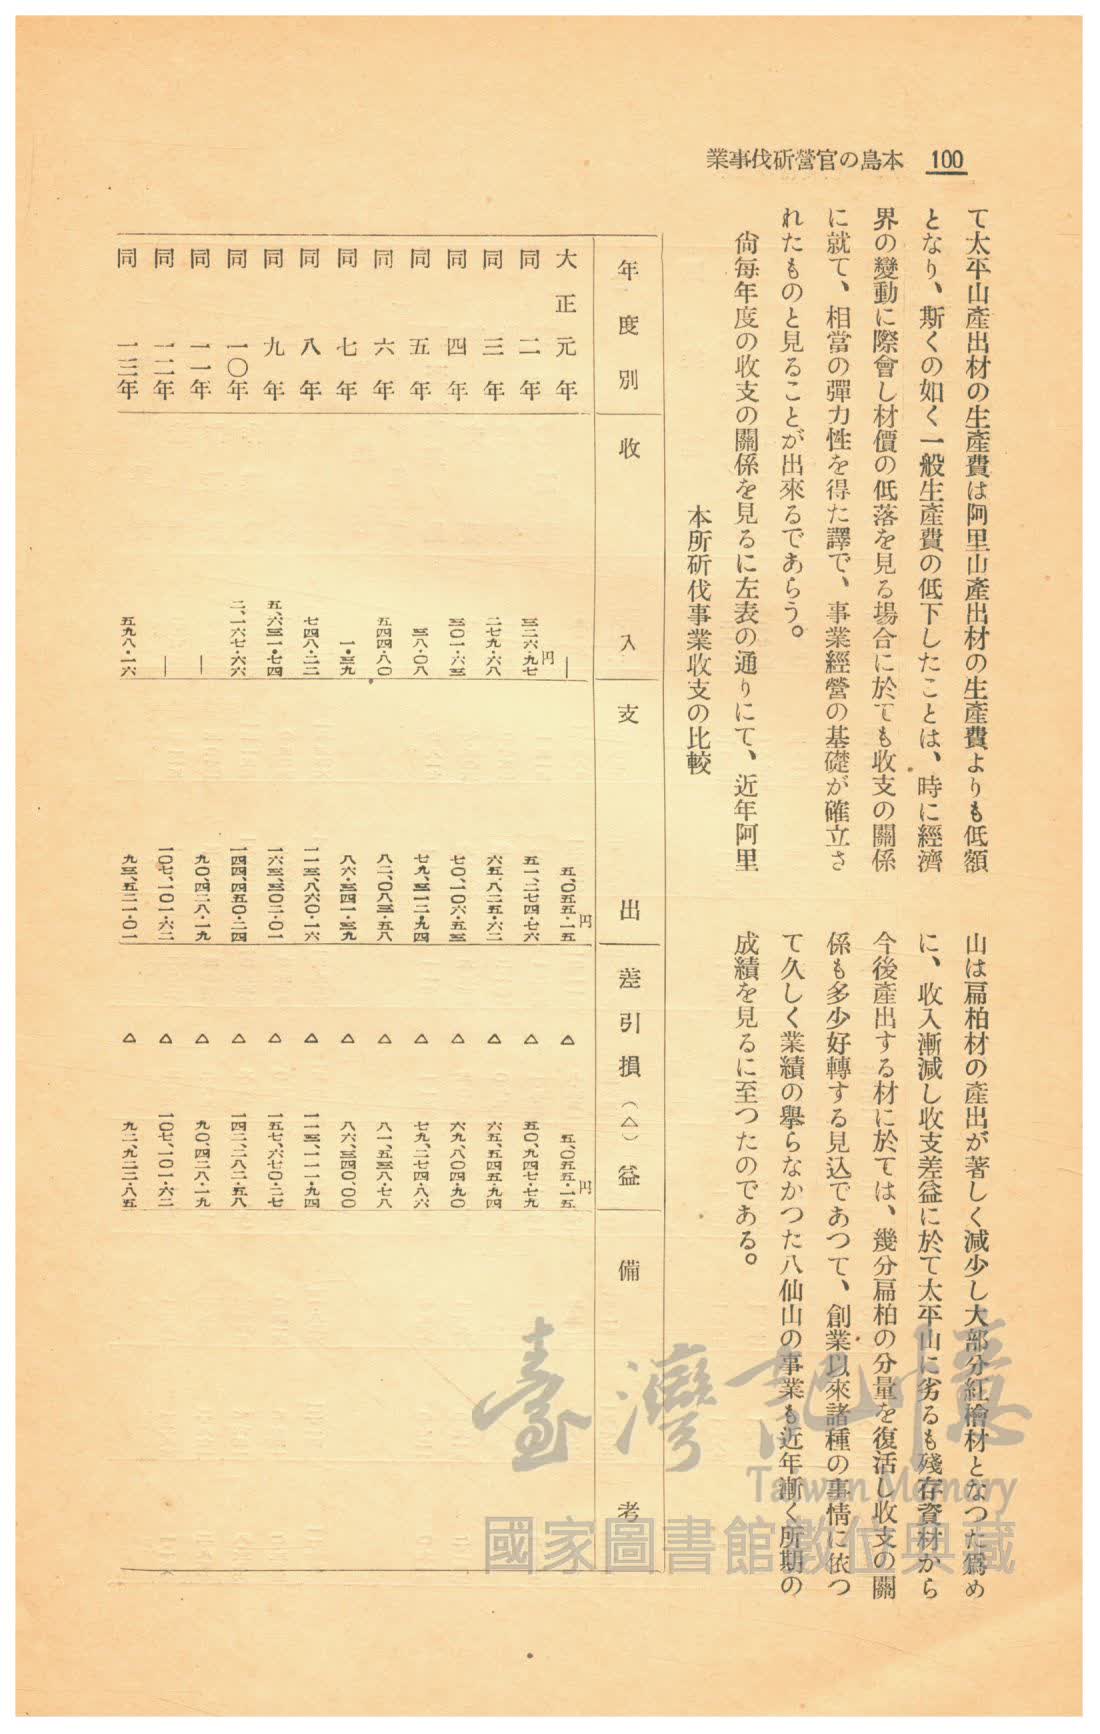 100 本島の官營斫伐事業
て太平山產出材の生產費は阿里山產出材の生產費よりも低額
となり、斯くの如く一般生產費の低下したことは、時に經濟
界の變動に際會し材價の低落を見る場合に於ても收支の關係
に就て、相當の彈力性を得た譯で、事業經營の基礎が確立さ
れたものと見ることが出來るであらう。
尙每年度の收支の關係を見るに左表の通りにて、近年阿里
山は扁柏材の產出が著しく減少し大部分紅檜材となつた爲め
に、收入漸減し收支差益に於て太平山に劣るも殘存資材から
今後產出する材に於ては、幾分扁柏の分量を復活し收支の關
係も多少好轉する見込であつて、創業以來諸種の事情に依つ
て久しく業績の擧らなかつた八仙山の事業も近年漸く所期の
成績を見るに至つたのである。
本所斫伐事業收支の比較
年度別 收入 支出 差引損(△)益 備考
大正元年 — 円 五、〇五五・一五円 △ 五、〇五五・一五円
同二年 三二六・九七 五一、二七四・七六 △ 五〇、九四七・七九
同三年 二七九・六八 六五、八二五・六二 △ 六五、五四五・九四
同四年 三〇一・六三 七〇、一〇六・五三 △ 六九、八〇四・九〇
同五年 三八・〇八 七九、三一二・九四 △ 七九、二七四・八六
同六年 五四四・八〇 八二、〇八三・五八 △ 八一、五三八・七八
同七年 一・三九 八六、三四一・三九 △ 八六、三四〇・〇〇
同八年 七四八・二二 一一三、八六〇・一六 △ 一一三、一一一・九四
同九年 五、六三一・七四 一六三、三〇二・〇一 △ 一五七、六七〇・二七
同一〇年 二、一六七・六六 一四四、四五〇・二四 △ 一四二、二八二・五八
同一一年 — 九〇、四二八・一九 △ 九〇、四二八・一九
同一二年 — 一〇七、一〇一・六二 △ 一〇七、一〇一・六二
同一三年 五九八・一六 九三、五二一・〇一 △ 九二、九二二・八五
臺灣記憶
Taiwan Memory
國家圖書館數位典藏